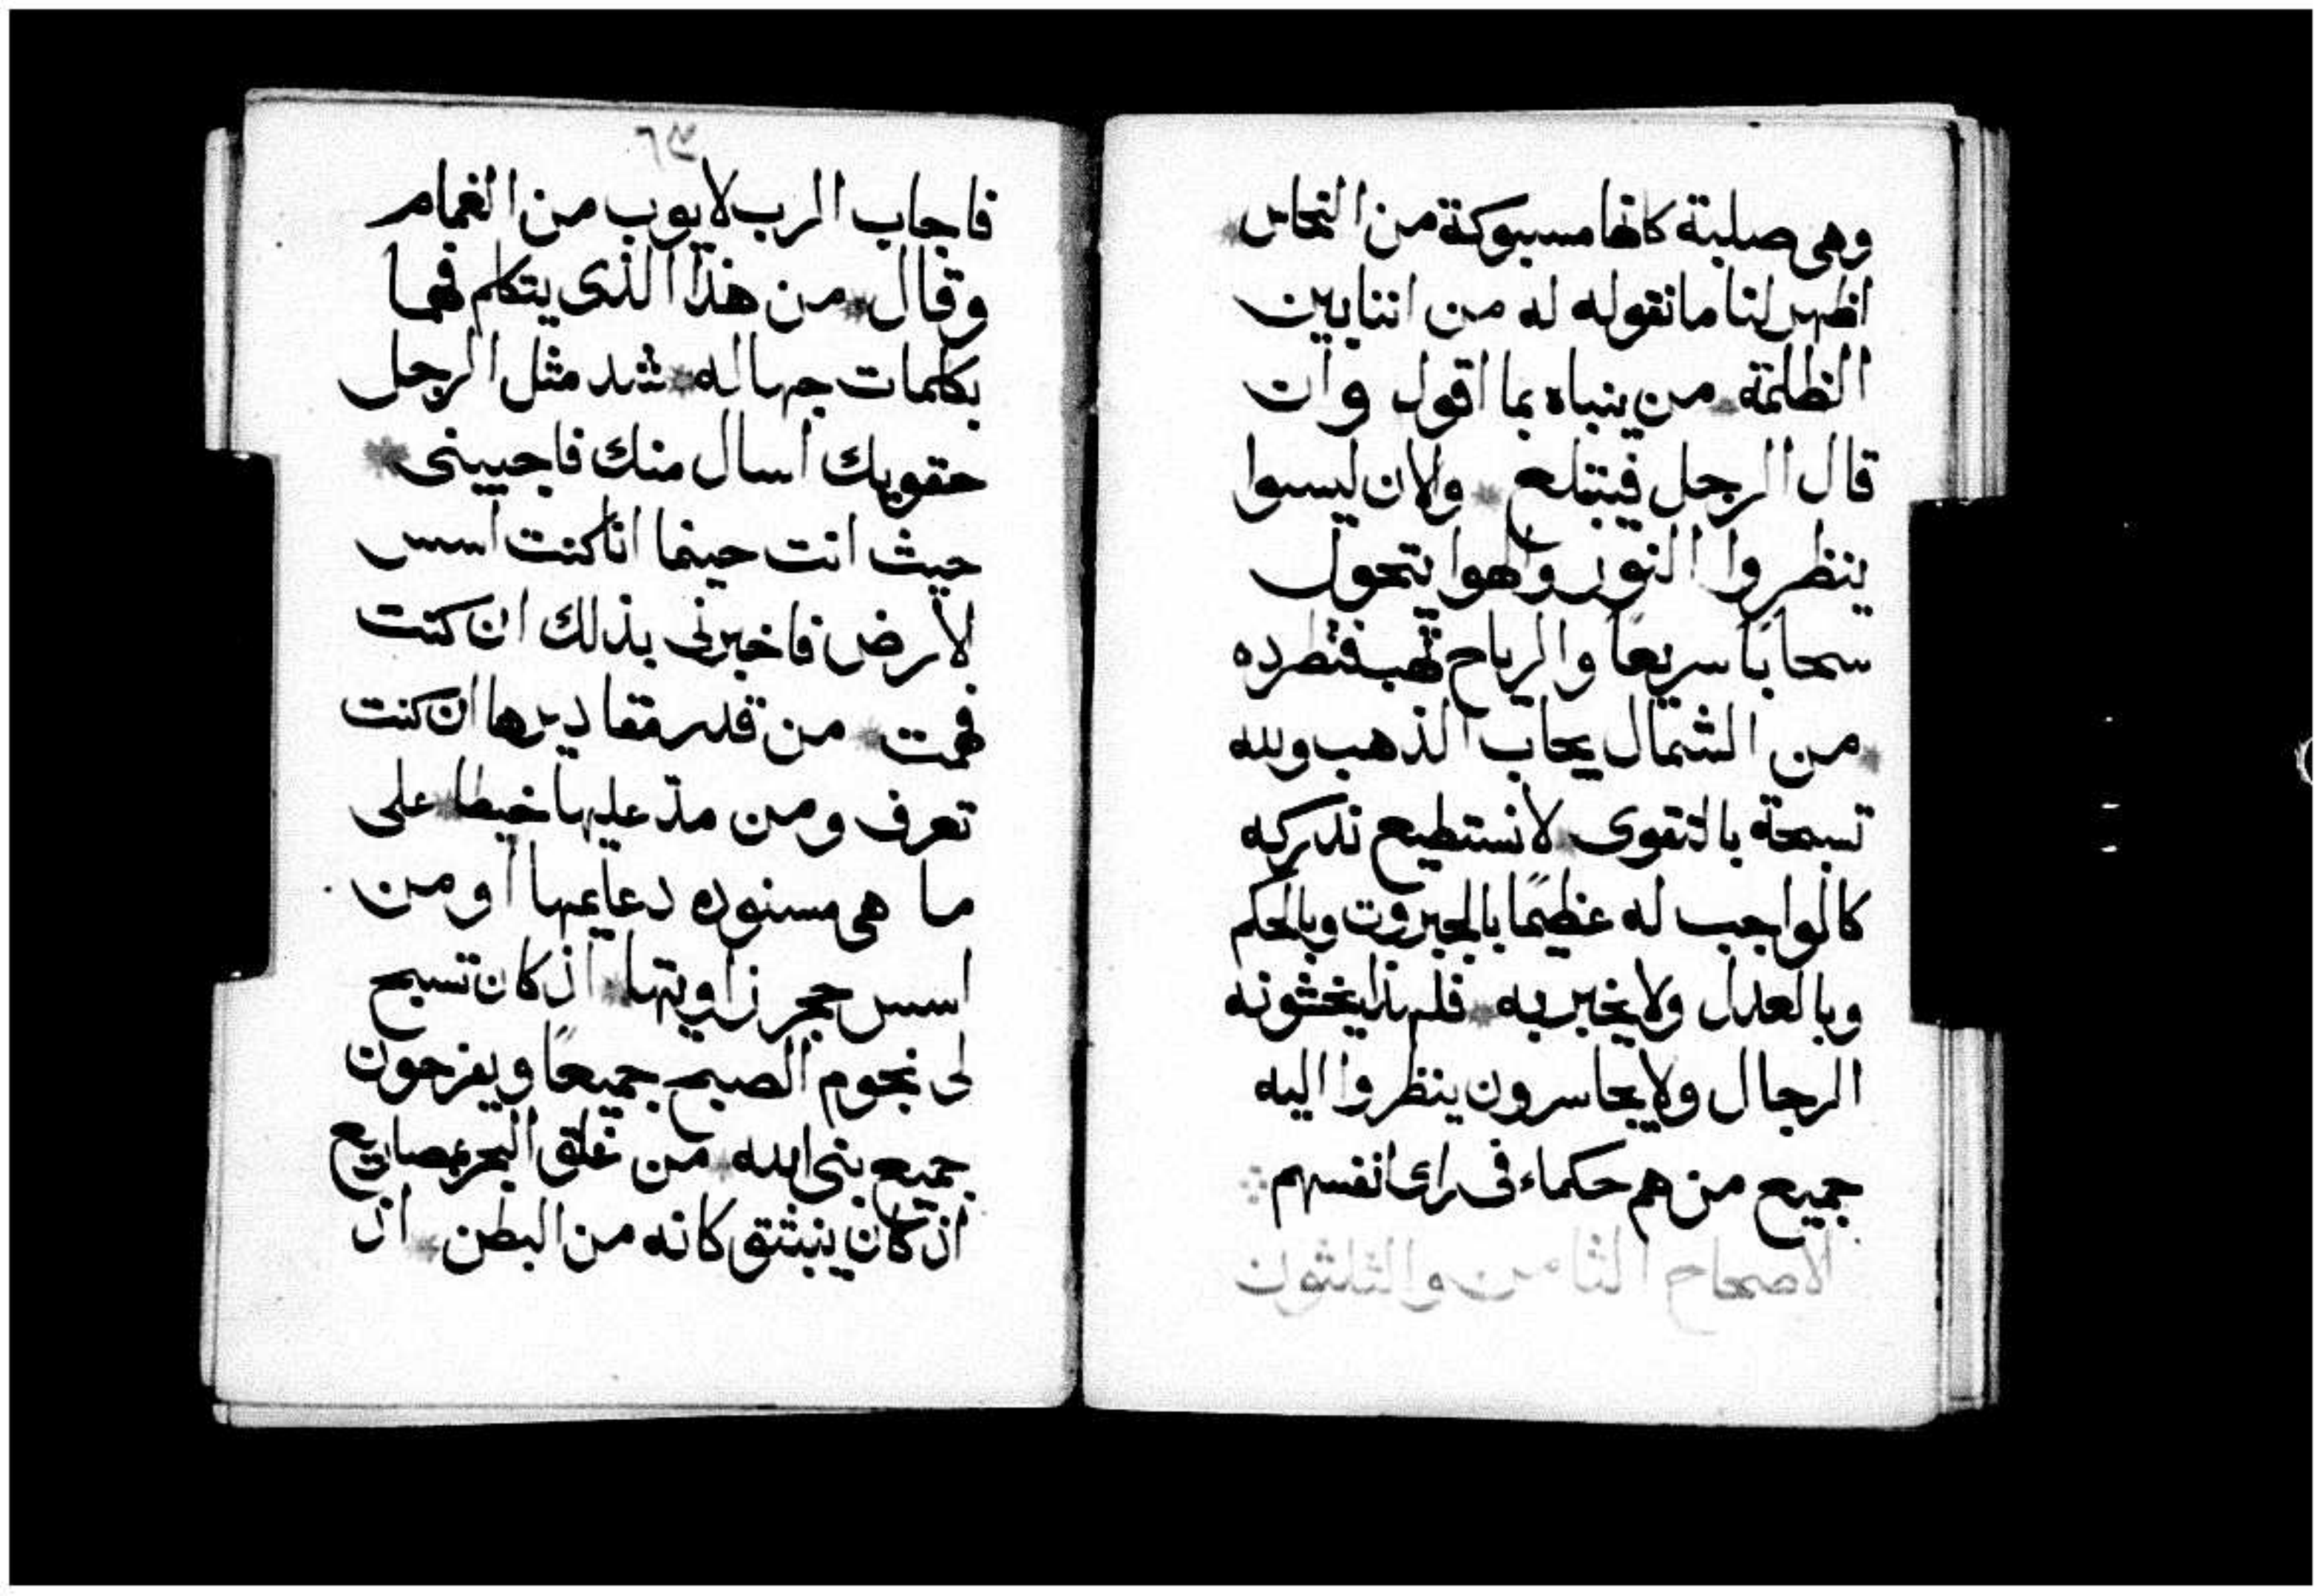 وهى صلبة كانها مسبوكة من النحاس
اظهر لنا ما نقوله له من اننا بين
الظلمة من ينباه بما اقول وان
قال الرجل فيبتلع والان ليسوا
ينظروا النور والهوا يتحول
سحاباً سريعاً والرياح تهب فتطرده
من الشمال يجاب الذهب ولله
تسبحة بالتقوى لا نستطيع ندركه
كالواجب له عظيمًا بالجبروت وبالحكم
وبالعدل ولا يخبر به فلهذا يخشونه
الرجال ولا يجاسرون ينظروا اليه
جميع من هم حكماء فى راى انفسهم
الاصحاح الثامن والثلثون
فاجاب الرب لايوب من الغمام
وقال من هذا الذى يتكلم فهما
بكلمات جهاله شد مثل الرجل
حقويك اسال منك فاجيبنى
حيث انت حينما انا كنت اسس
لارض فاخبرنى بذلك ان كنت
فهمت من قدر مقاديرها ان كنت
تعرف ومن مد عليها خيطا على
ما هى مسنوده دعايمها او من
اسس حجر زاويتها اذ كان تسبح
لى نجوم الصبح جميعاً ويفرحون
جميع بنى الله من غلق البحر بمصاريع
اذ كان ينبثق كانه من البطن اذ